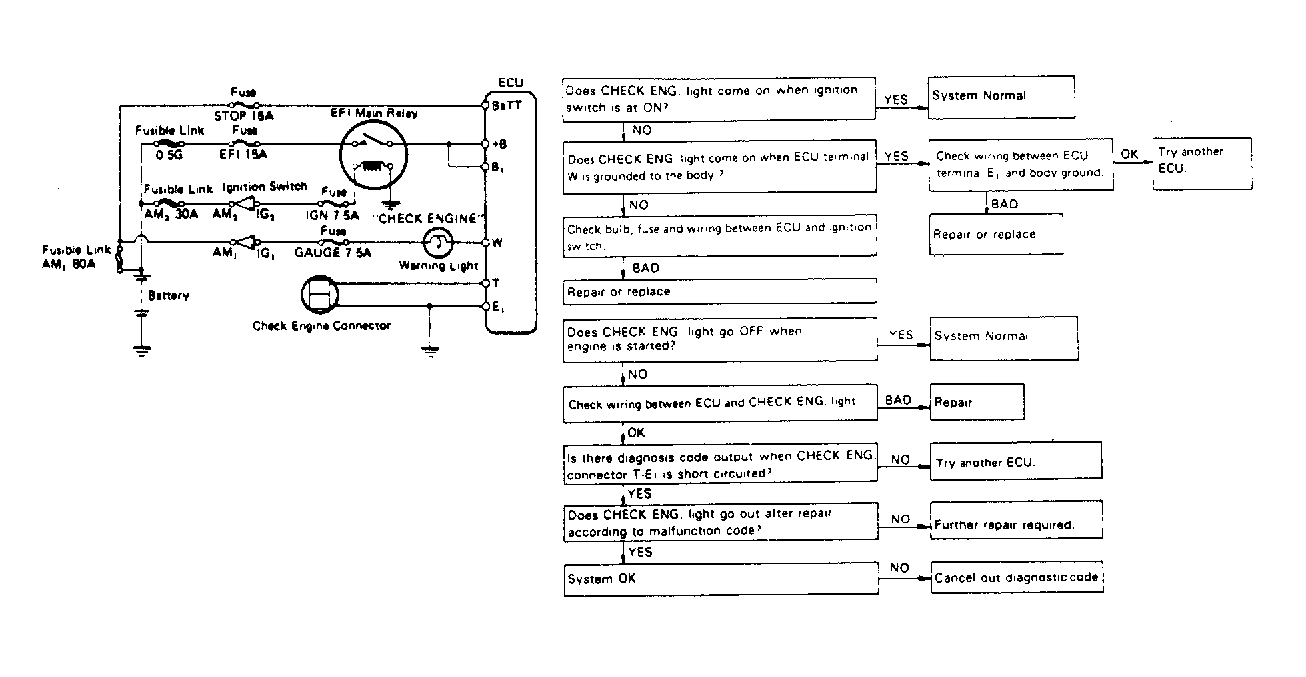 ECU
Fuse
STOP 15A
BATT
Fusible Link
0.5G
Fuse
EFI 15A
EFI Main Relay
+B
B₁
Fusible Link
AM₂ 30A
Ignition Switch
AM₂ IG₂
Fuse
IGN 7.5A
"CHECK ENGINE"
W
AM₁ IG₁
Fuse
GAUGE 7.5A
Warning Light
Fusible Link
AM₁ 80A
Battery
T
E₁
Check Engine Connector
Does CHECK ENG. light come on when ignition
switch is at ON?
YES
System Normal
NO
Does CHECK ENG. light come on when ECU terminal
W is grounded to the body?
YES
Check wiring between ECU
terminal E₁ and body ground.
OK
Try another
ECU.
NO
BAD
Repair or replace
Check bulb, fuse and wiring between ECU and ignition
switch.
BAD
Repair or replace
Does CHECK ENG. light go OFF when
engine is started?
YES
System Normal
NO
Check wiring between ECU and CHECK ENG. light
BAD
Repair
OK
Is there diagnosis code output when CHECK ENG.
connector T-E₁ is short circuited?
NO
Try another ECU.
YES
Does CHECK ENG. light go out after repair
according to malfunction code?
NO
Further repair required.
YES
System OK
NO
Cancel out diagnostic code